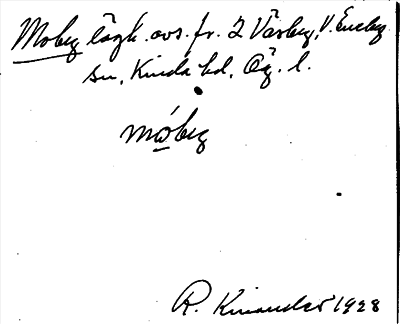 Moby lägh. avs. fr. 2 Väsby, V. Eneby
sn, Kinda hd, Ög. l.
móby
R. Kinander 1928